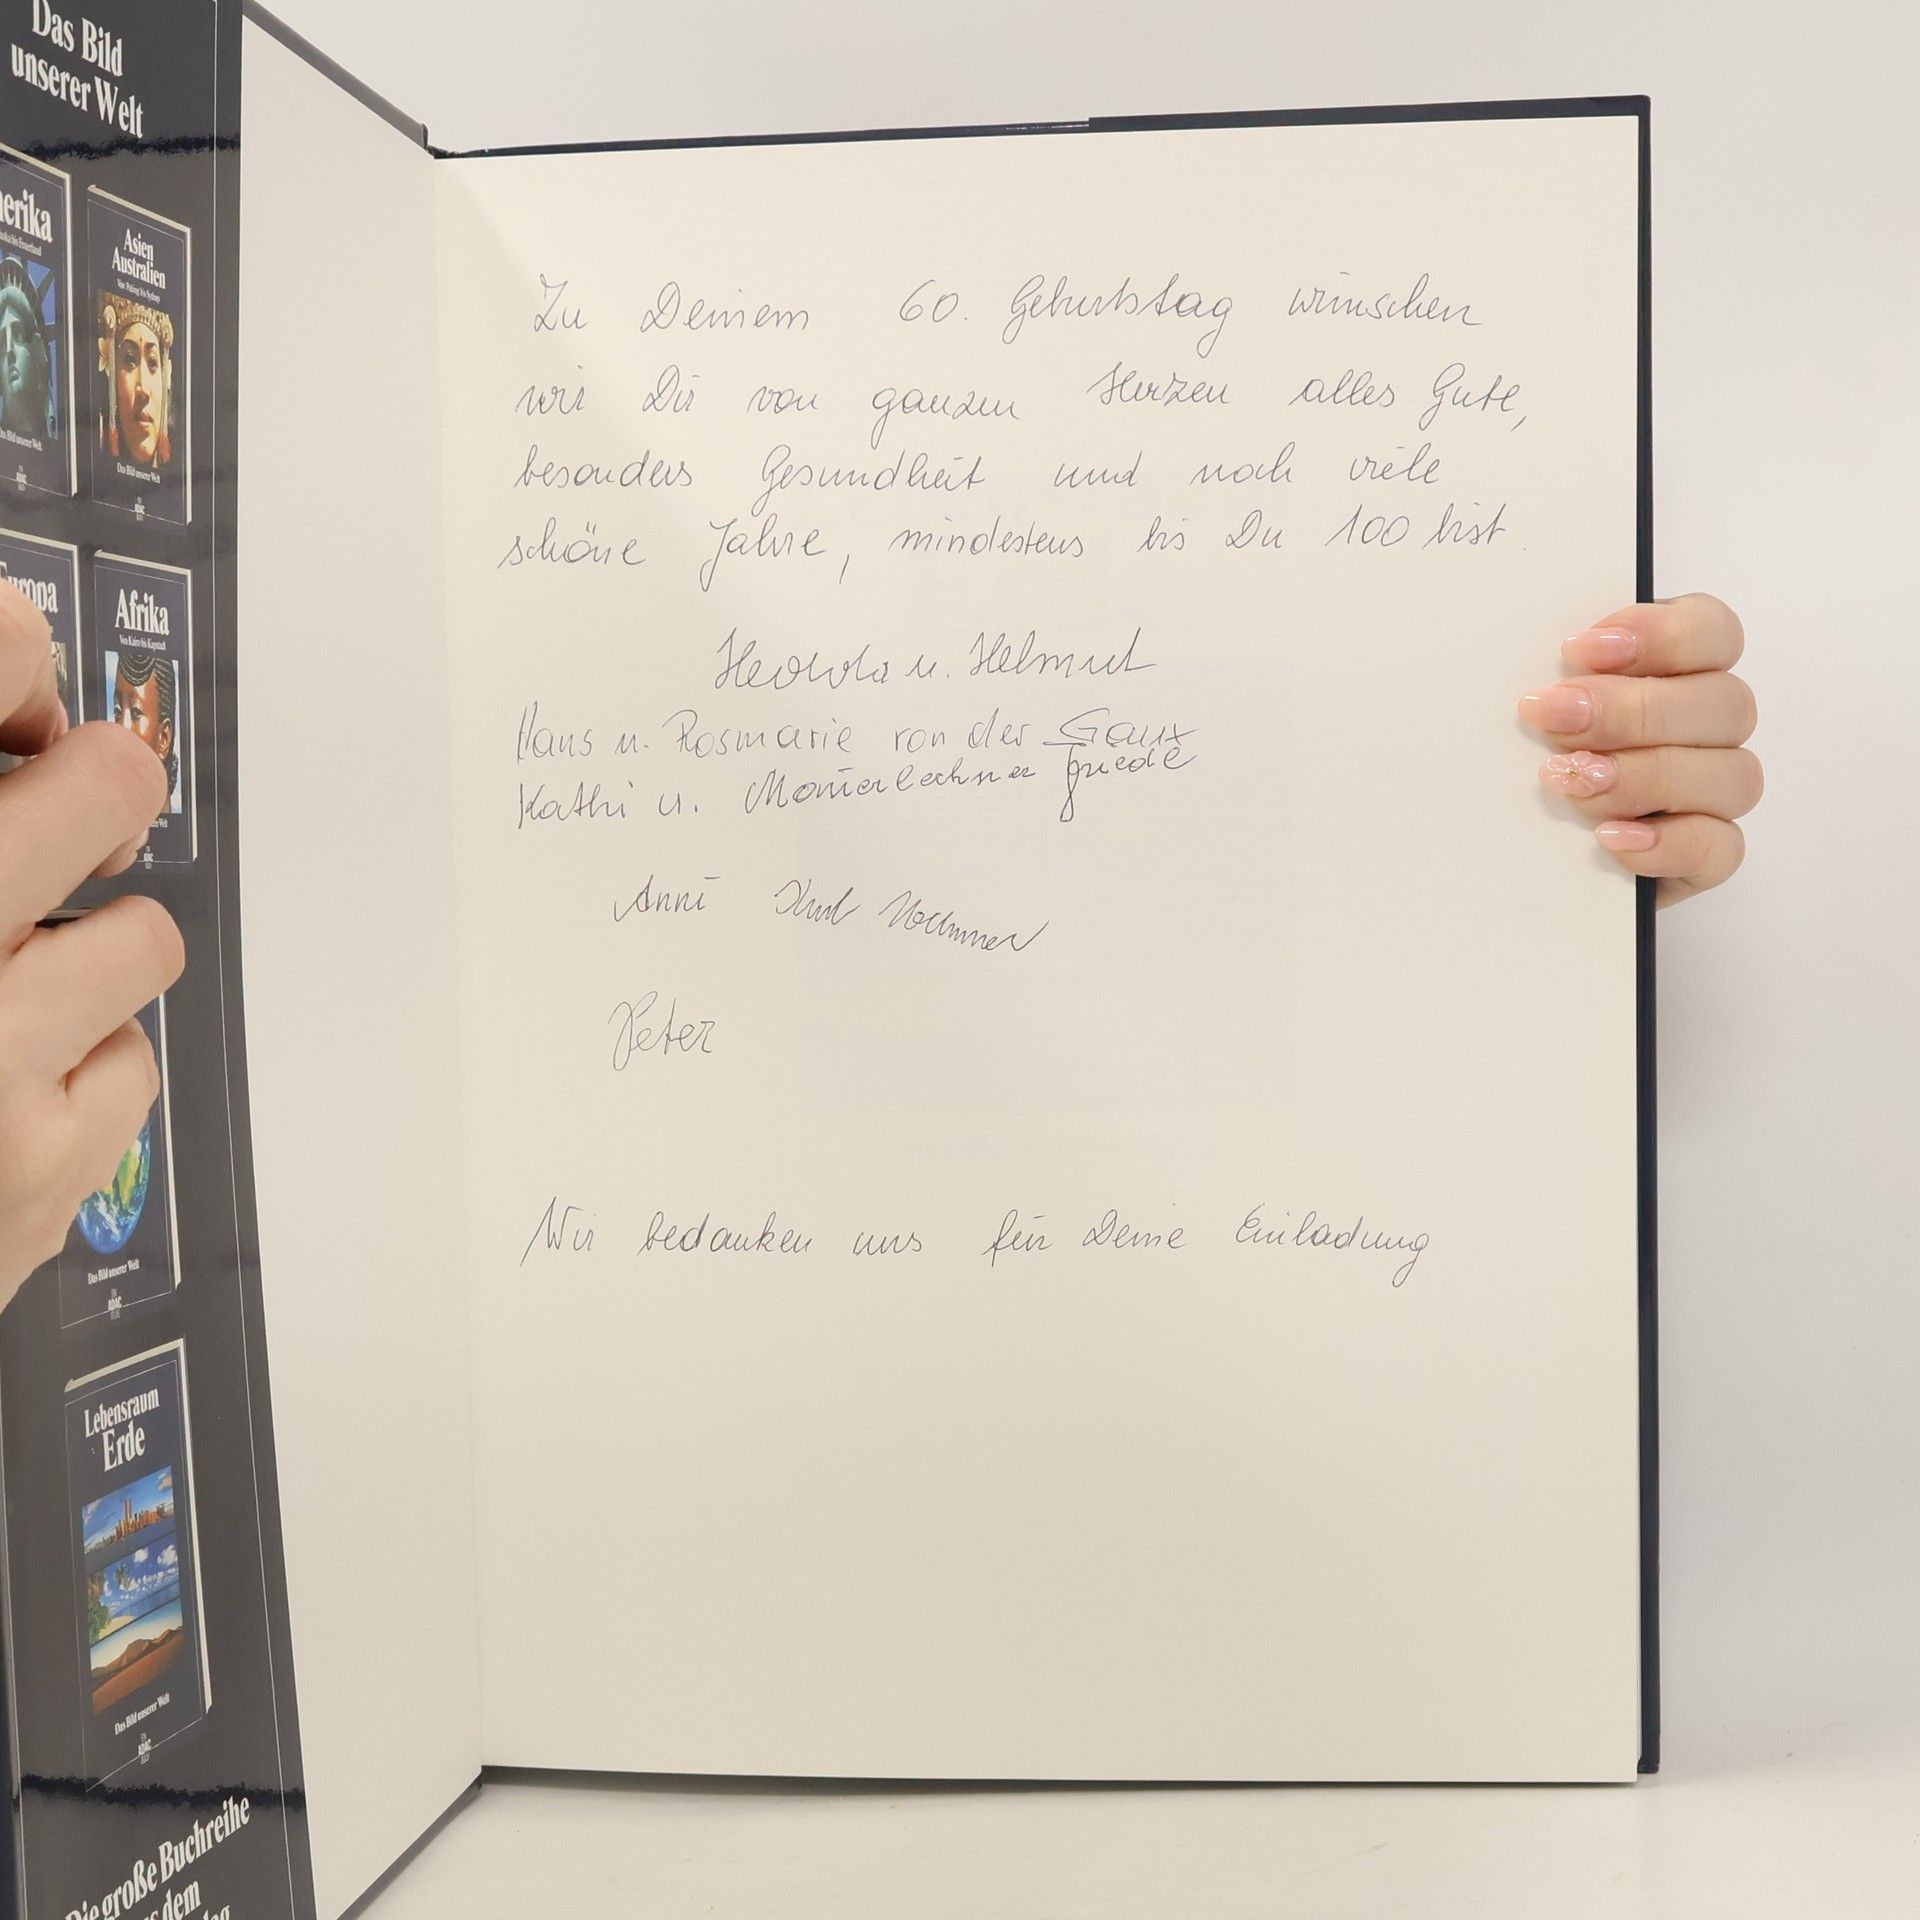 Das Bild
unserer Welt
erika
Das Bild unserer Welt
ADAC
Asien
Australien
Von Peking bis Sydney
Das Bild unserer Welt
EIN
ADAC
BUCH
Europa
Afrika
Von Kairo bis Kapstadt
EIN
ADAC
BUCH
Das Bild unserer Welt
EIN
ADAC
Lebensraum
Erde
Das Bild unserer Welt
EIN
ADAC
BUCH
Die große Buchreihe
dem
Zu Deinem 60. Geburtstag wünschen
wir Dir von ganzen Herzen alles Gute,
besonders Gesundheit und noch viele
schöne Jahre, mindestens bis Du 100 bist.
u. Helmut
Hans u. Rosmarie von der
Kathi u.
Anni
Peter
Wir bedanken uns für Deine Einladung